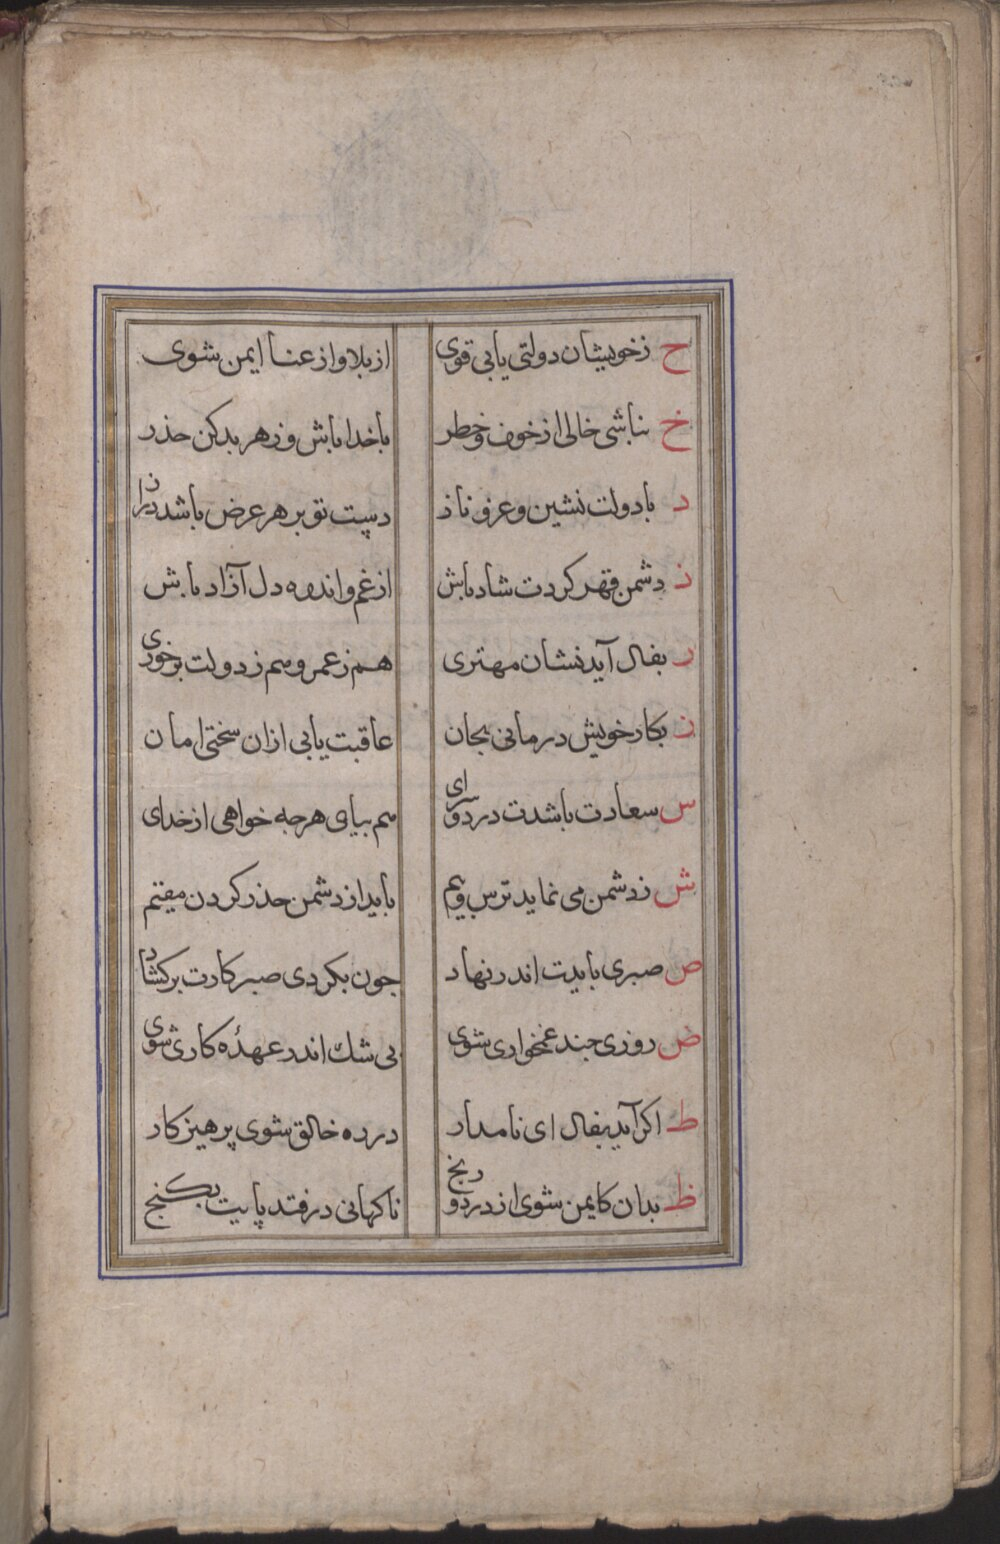 ح زخویشان دولتی یابی قوی از بلا و از عنا ایمن شوی
خ نباشی خالی از خوف و خطر با خدا باش و ز هر بد کن حذر
د با دولت نشین و عز و ناز دست تو بر هر عرض باشد دراز
ذ دشمن قهر کردت شاد باش از غم و اندوه دل آزاد باش
ر بفال آید نشان مهتری هم ز عمر و هم ز دولت برخوری
ز بکار خویش درمانی بجان عاقبت یابی ازان سختی امان
س سعادت باشدت در دو سرای هم بیابی هرجه خواهی از خدای
ش ز دشمن می نماید ترس و بیم باید از دشمن حذر کردن مقیم
ص صبری بایدت اندر نهاد جون بکردی صبر کارت برکشاد
ض روزی جند غمخواری شوی بی شک اندر عهدهٔ کاری شوی
ط اکر آید بفال ای نامدار در ره خالق شوی پرهیزکار
ظ بدان کایمن شوی از درد و رنج ناکهانی در فتد پایت بکنج